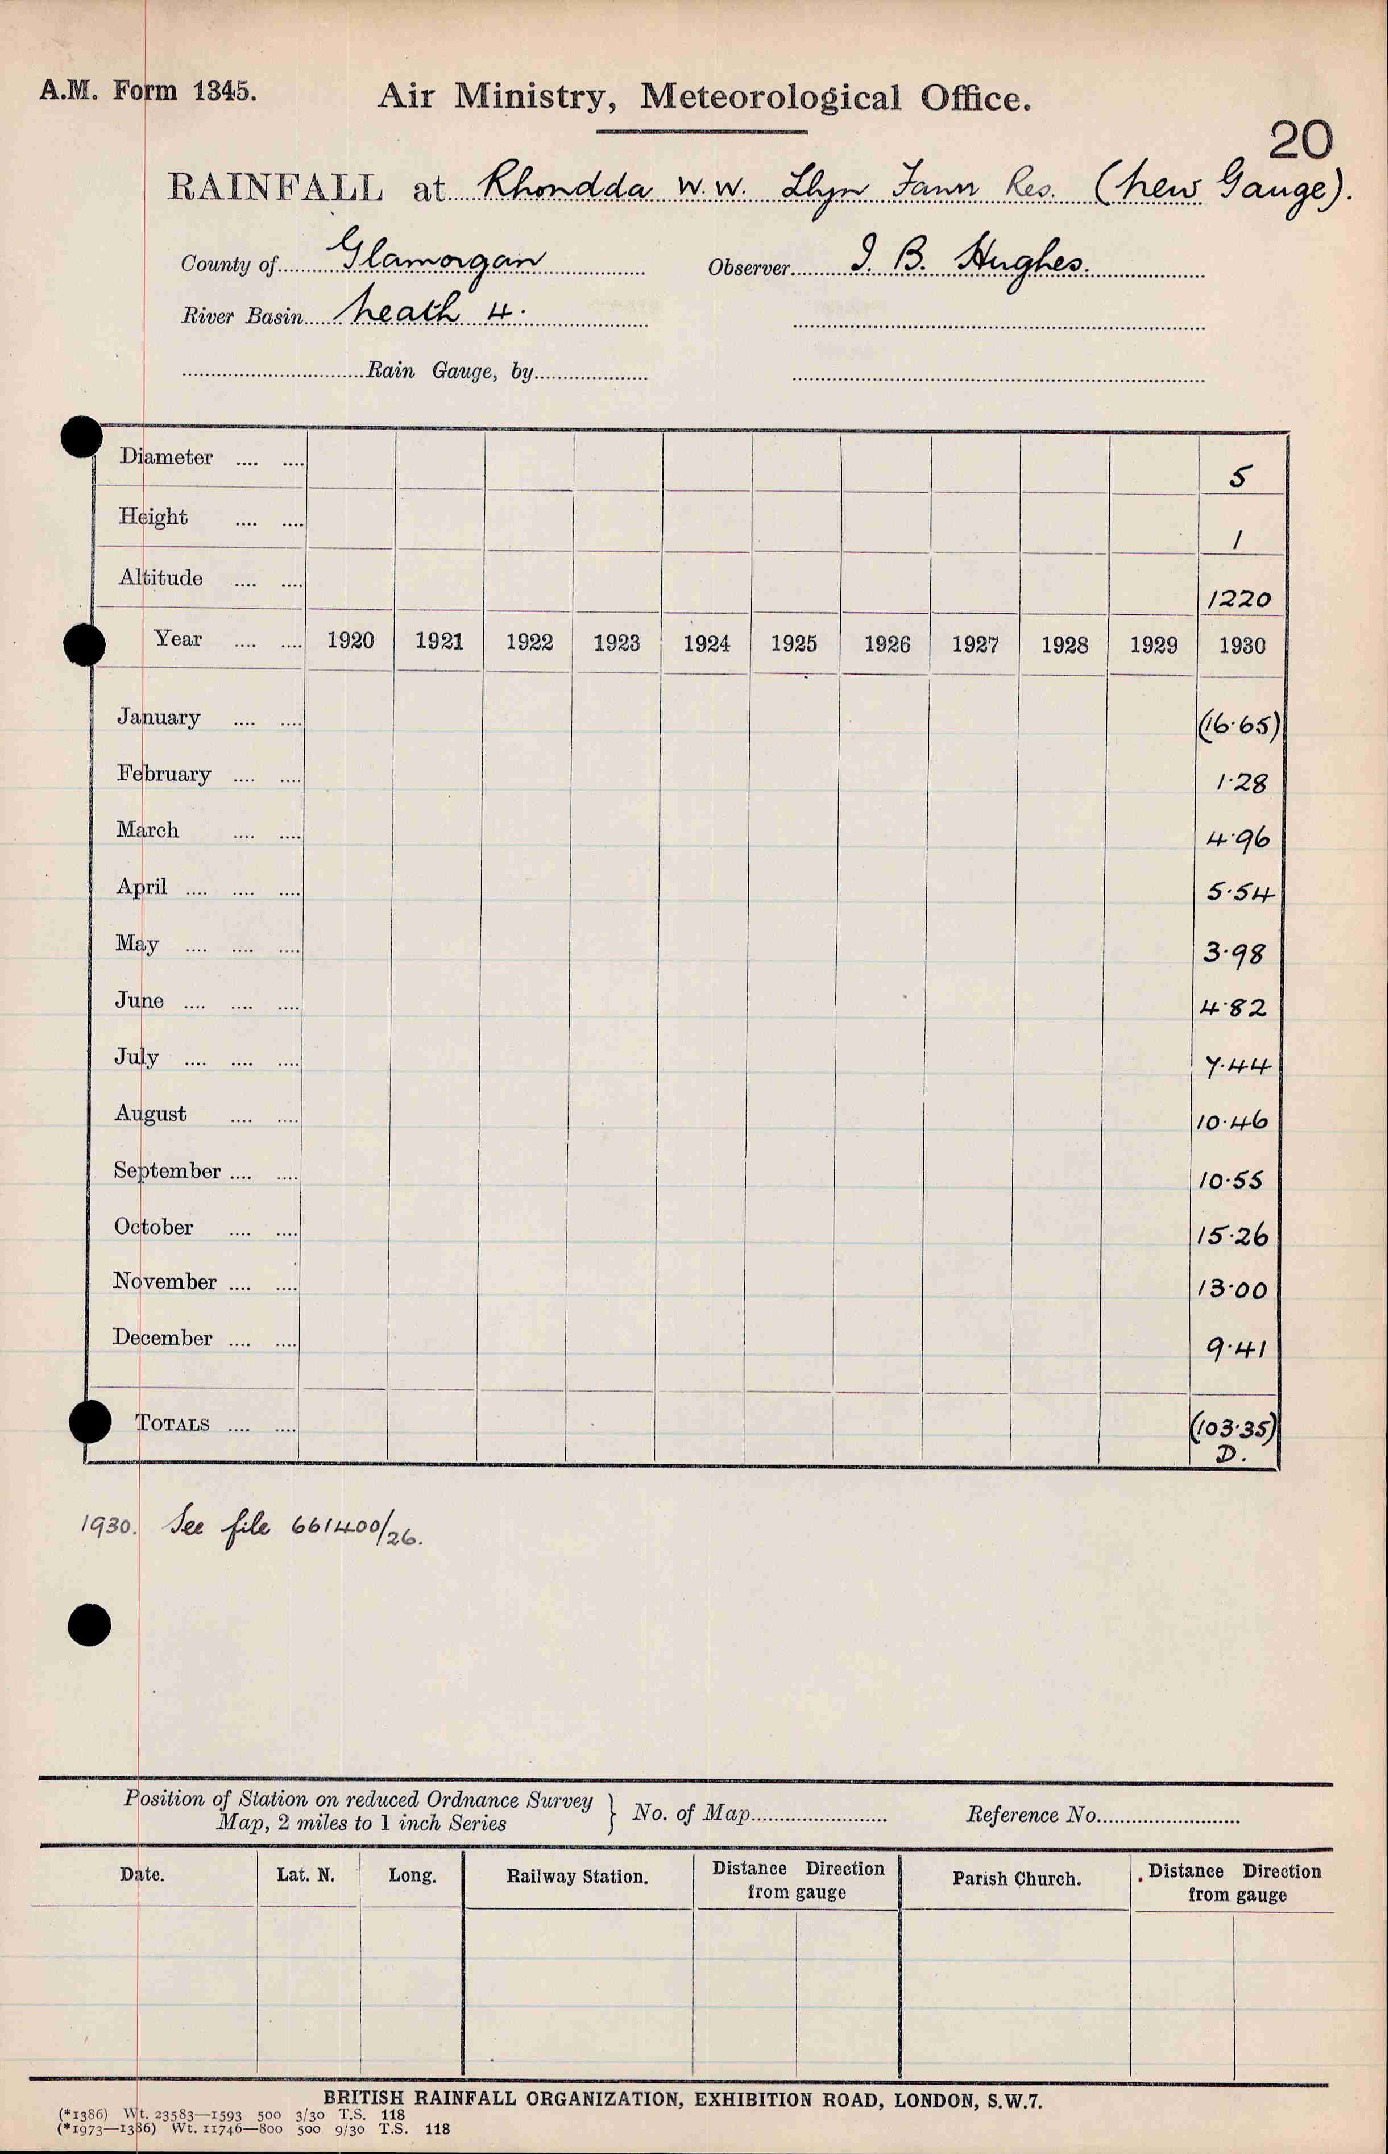 A.M. Form 1345.
Air Ministry, Meteorological Office.
20
RAINFALL at Rhondda W.W. Llyn Fawr Res. (New Gauge).
County of Glamorgan Observer I. B. Hughes.
River Basin Neath 4.
Rain Gauge, by
Diameter .... .... 5
Height .... .... 1
Altitude .... .... 1220
Year .... .... 1920 1921 1922 1923 1924 1925 1926 1927 1928 1929 1930
January .... .... (16.65)
February .... .... 1.28
March .... .... 4.96
April .... .... .... 5.54
May .... .... .... 3.98
June .... .... .... 4.82
July .... .... .... 7.44
August .... .... 10.46
September .... .... 10.55
October .... .... 15.26
November .... .... 13.00
December .... .... 9.41
TOTALS .... .... (103.35)
D.
1930. See file 661400/26.
Position of Station on reduced Ordnance Survey
Map, 2 miles to 1 inch Series } No. of Map Reference No.
Date. Lat. N. Long. Railway Station. Distance Direction from gauge Parish Church. Distance Direction from gauge
BRITISH RAINFALL ORGANIZATION, EXHIBITION ROAD, LONDON, S.W.7.
(*1386) Wt. 23583—1593 500 3/30 T.S. 118
(*1973—1386) Wt. 11746—800 500 9/30 T.S. 118